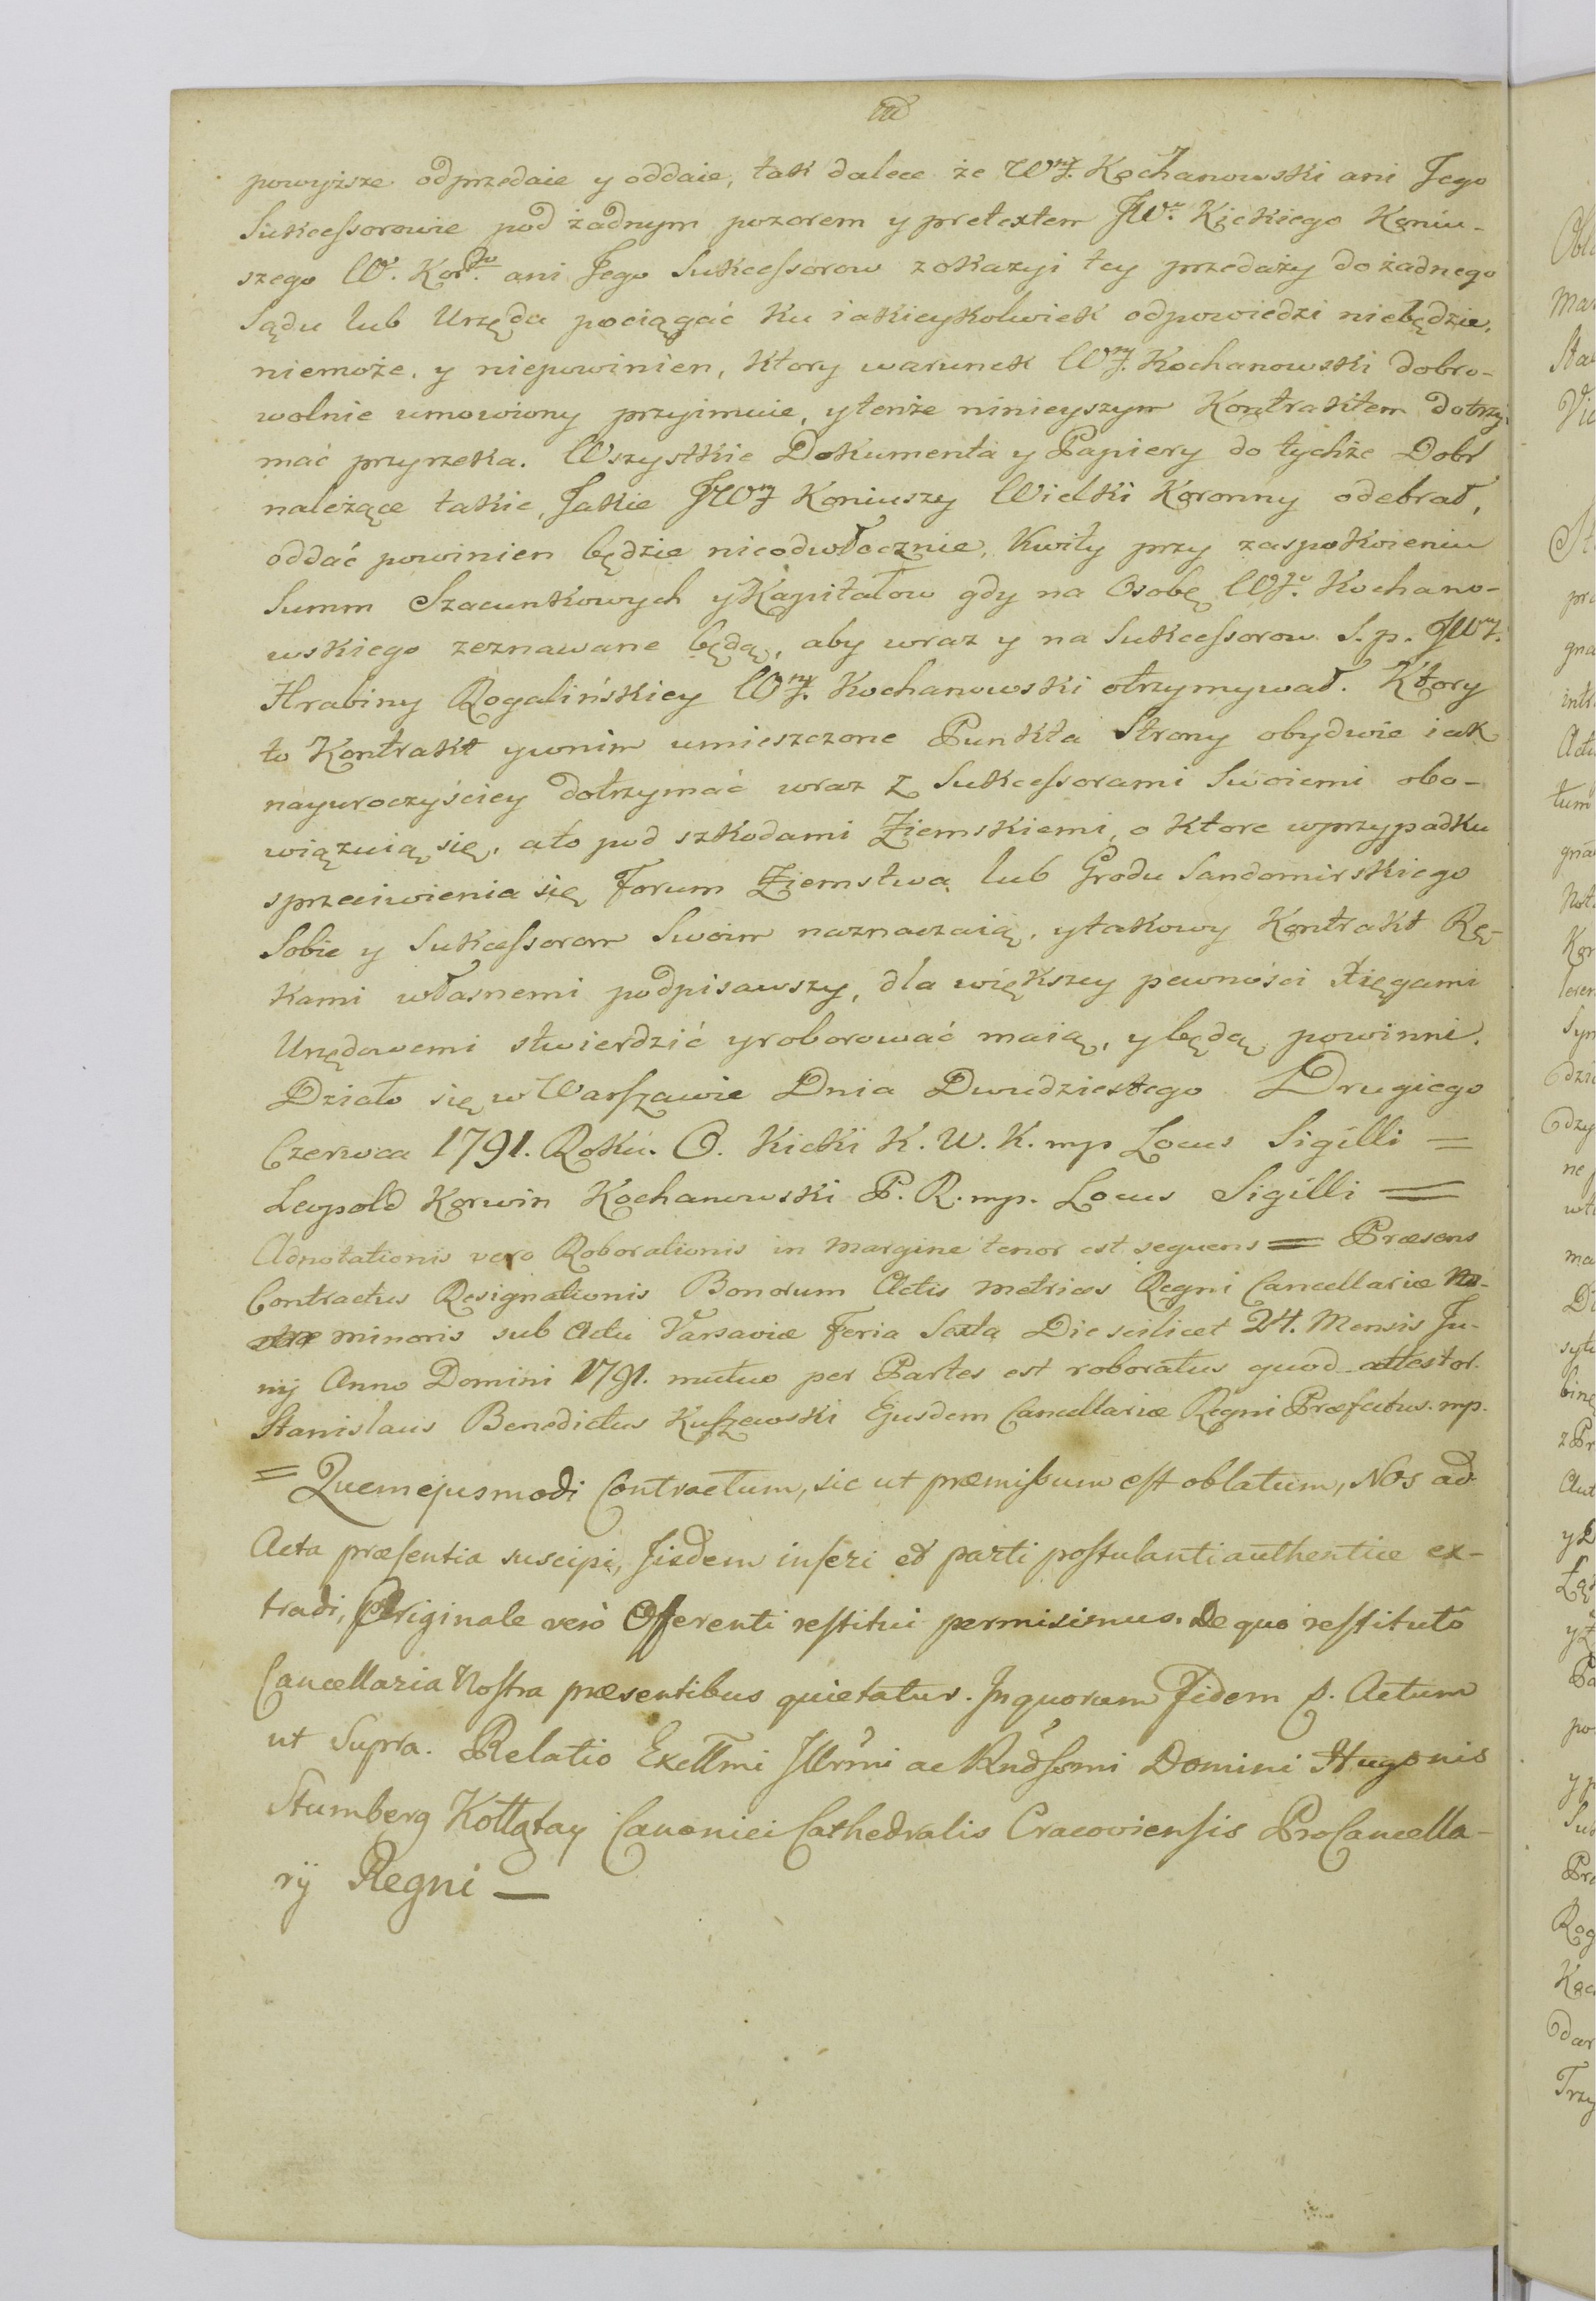 powyższe odprzedaie y oddaie, tak dalece że WJ. Kochanowski ani Jego
Sukcessorowie pod żadnym pozorem y pretextem JWo. Kickiego Koniu-
szego W. Korgo. ani Jego Sukcessorow z okazyi tey przedaży do żadnego
Sądu lub Urzędu pociągać ku iakieykolwiek odpowiedzi niebędzie,
niemoże, y niepowinien, ktory warunek WJ. Kochanowski dobro-
wolnie umowiony przyimuie, y tenże ninieyszym Kontraktem dotrzy-
mać przyrzeka. Wszystkie Dokumenta y Papiery do tychże Dobr
należące takie, Jakie JWJ Koniuszy Wielki Koronny odebrał,
oddać powinien będzie nieodwłocznie, Kwity przy zaspokoieniu
Summ Szacunkowych y Kapitałow gdy na Osobę WJo. Kochano-
wskiego zeznawane będą, aby wraz y na Sukcessorow S. p. JWJ.
Hrabiny Rogalińskiey WJ. Kochanowski otrzymywał. Ktory
to Kontrakt y w nim umieszczone Punkta Strony obydwie iak
nayuroczyściey dotrzymać wraz z Sukcessorami Swoiemi obo-
wiązuią się, a to pod szkodami Ziemskiemi, o ktore w przypadku
sprzeciwienia się Forum Ziemstwa lub Grodu Sandomirskiego
Sobie y Sukcessorom Swoim naznaczaią, y takowy Kontrakt Rę-
kami własnemi podpisawszy, dla większey pewności Xięgami
Urzędowemi stwierdzić y roborować maią, y będą powinni.
Działo się w Warszawie Dnia Dwudziestego Drugiego
Czerwca 1791. Roku. O. Kicki K. W. K. mp Locus Sigilli =
Leopold Korwin Kochanowski P. R. mp. Locus Sigilli =
Adnotationis vero Roborationis in margine tenor est sequens = Præsens
Contractus Resignationis Bonorum Actis Metrices Regni Cancellariæ
minoris sub Actu Varsaviæ Feria Sexta Die scilicet 24. Mensis Ju-
nij Anno Domini 1791. mutuo per Partes est roboratus quod attestor.
Stanislaus Benedictus Kuszewski Ejusdem Cancellariæ Regni Præfectus. mp.
= Quem ejusmodi Contractum, sic ut præmissum est oblatum, Nos ad
Acta præsentia suscipi, Jisdem inseri et parti postulanti authentice ex-
tradi, Originale verò Offerenti restitui permisimus. De quo restitutô
Cancellaria Nostra præsentibus quietatur. In quorum Fidem p. Actum
ut Supra. Relatio Excellmi Jllrmi ac Rndssmi Domini Hugonis
Stumberg Kołłątay Canonici Cathedralis Cracoviensis ProCancella-
rij Regni —